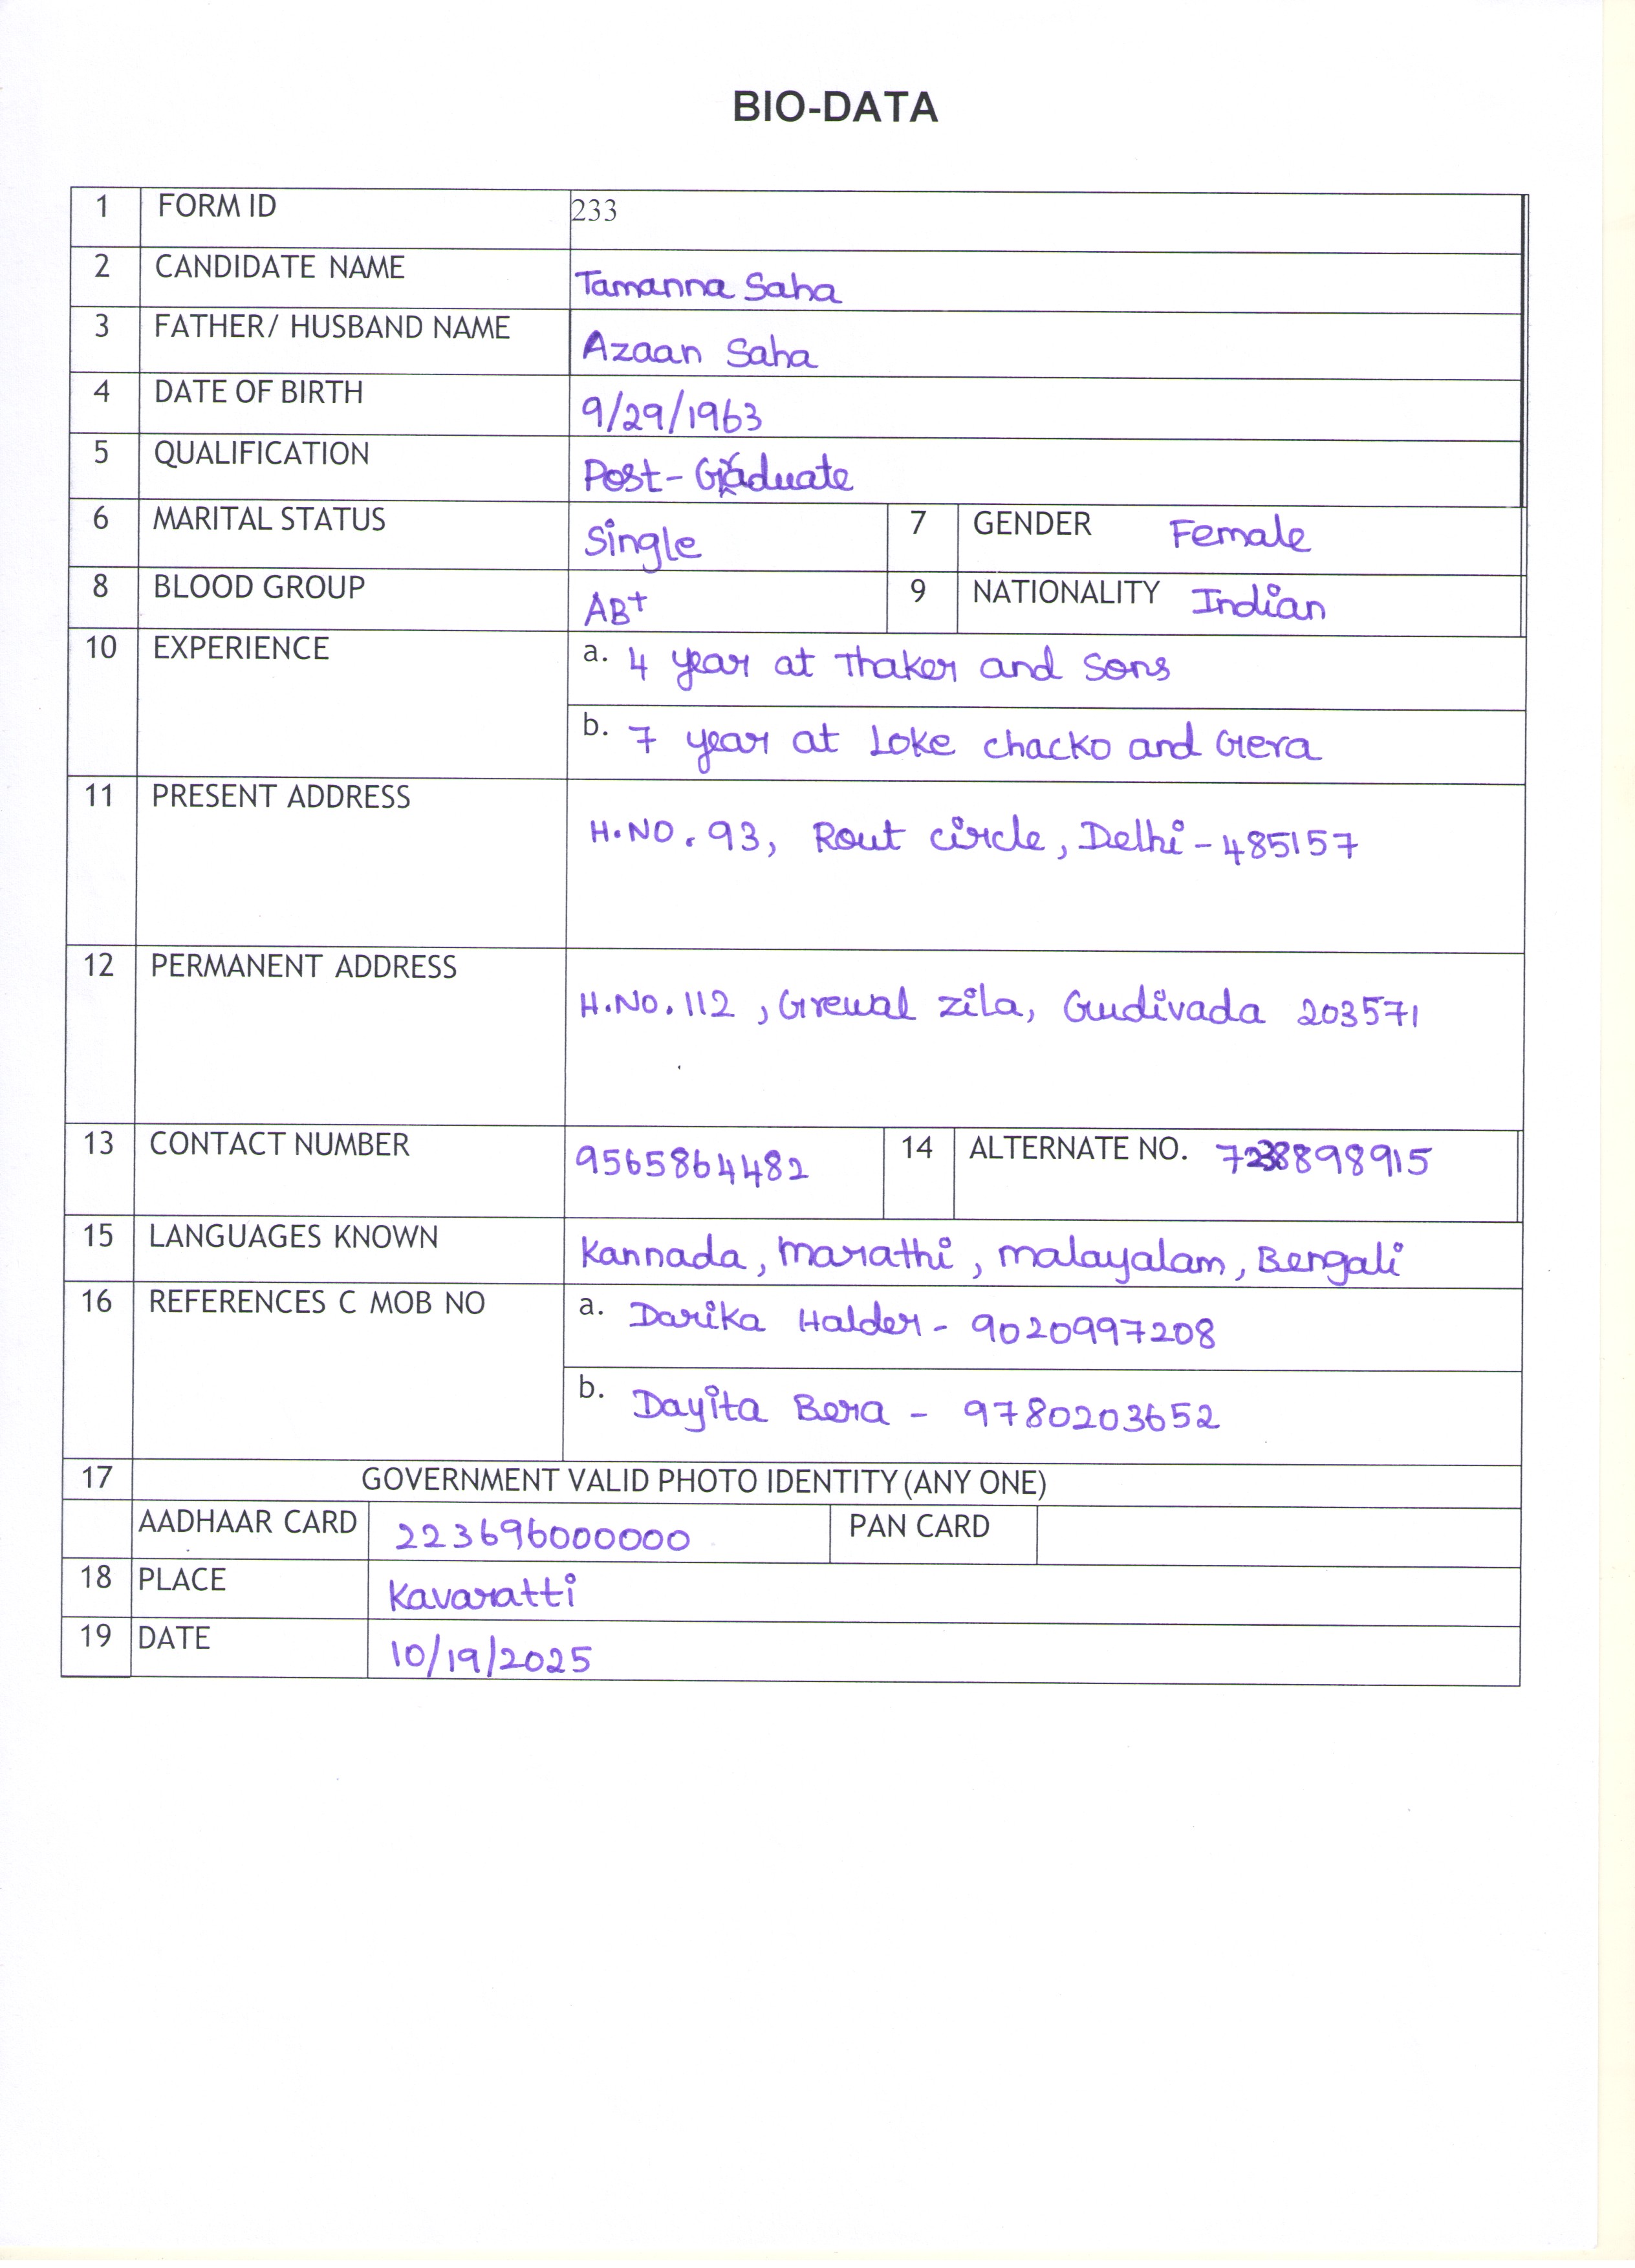 BIO-DATA
1 FORM ID 233
2 CANDIDATE NAME Tamanna Saha
3 FATHER/ HUSBAND NAME Azaan Saha
4 DATE OF BIRTH 9/29/1963
5 QUALIFICATION Post-Graduate
6 MARITAL STATUS Single 7 GENDER Female
8 BLOOD GROUP AB+ 9 NATIONALITY Indian
10 EXPERIENCE a. 4 year at Thaker and Sons
b. 7 year at Loke chacko and Gera
11 PRESENT ADDRESS
H.NO. 93, Rout circle, Delhi - 485157
12 PERMANENT ADDRESS
H.No. 112, Grewal zila, Gudivada 203571
13 CONTACT NUMBER 9565864482 14 ALTERNATE NO.
15 LANGUAGES KNOWN Kannada, Marathi, malayalam, Bengali
16 REFERENCES C MOB NO a. Darika Halder - 9020997208
b. Dayita Bera - 9780203652
17 GOVERNMENT VALID PHOTO IDENTITY (ANY ONE)
AADHAAR CARD 223696000000 PAN CARD
18 PLACE Kavaratti
19 DATE 10/19/2025